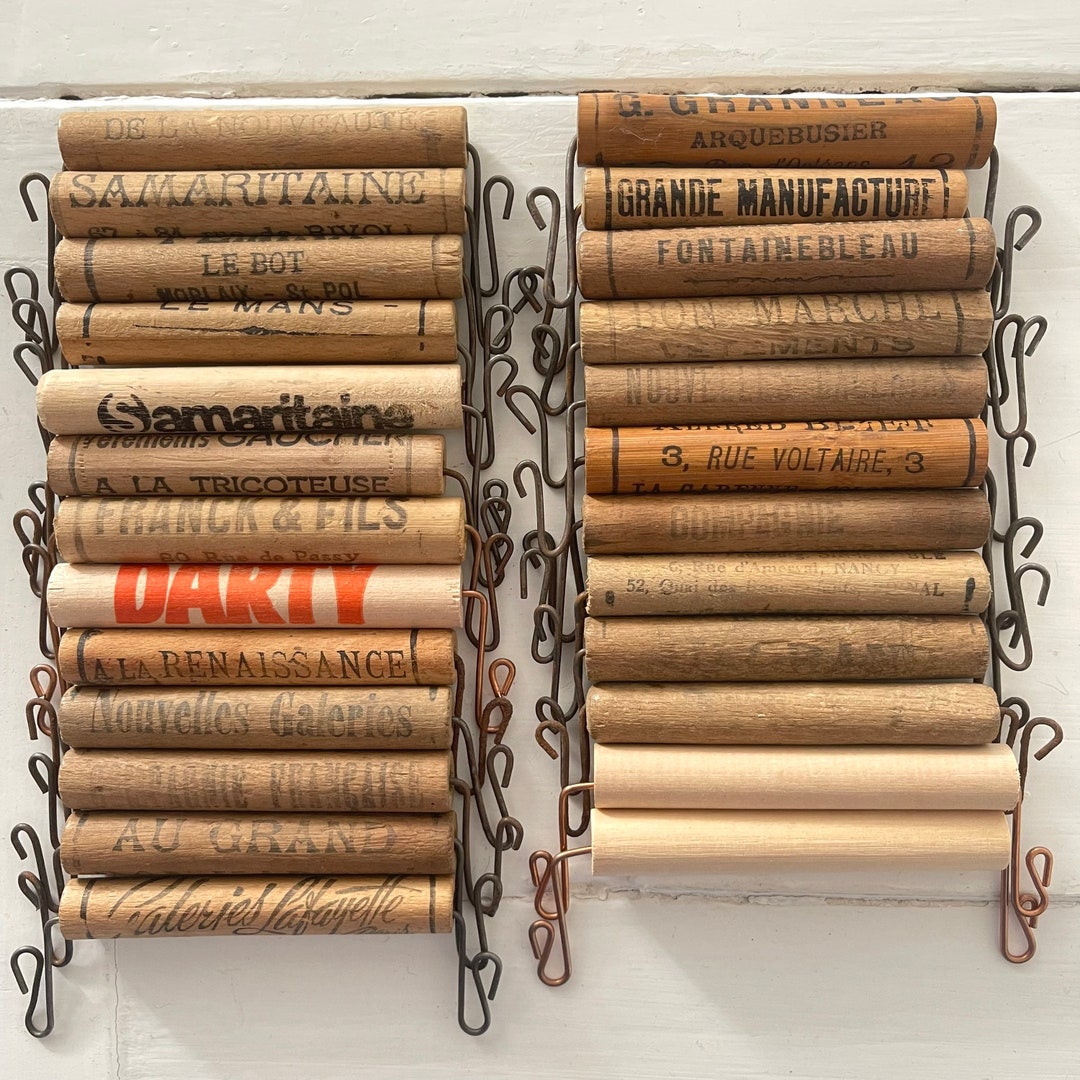 DE LA NOUVEAUTÉ
PARIS
SAMARITAINE
67 à 81 Rue de RIVOLI
LE BOT
MORLAIX - St POL
LE MANS -
Samaritaine
Vêtements GAUCHER
A LA TRICOTEUSE
FRANCK & FILS
80 Rue de Passy
DARTY
A LA RENAISSANCE
Nouvelles Galeries
FRANÇAISE
AU GRAND
Galeries Lafayette
Paris
G.
ARQUEBUSIER
Rue d'Orléans, 13
GRANDE MANUFACTURE
FONTAINEBLEAU
BON MARCHÉ
VÊTEMENTS
3, RUE VOLTAIRE, 3
LA GARENNE
COMPAGNIE
6, Rue d'Amerval, NANCY
52, Quai des